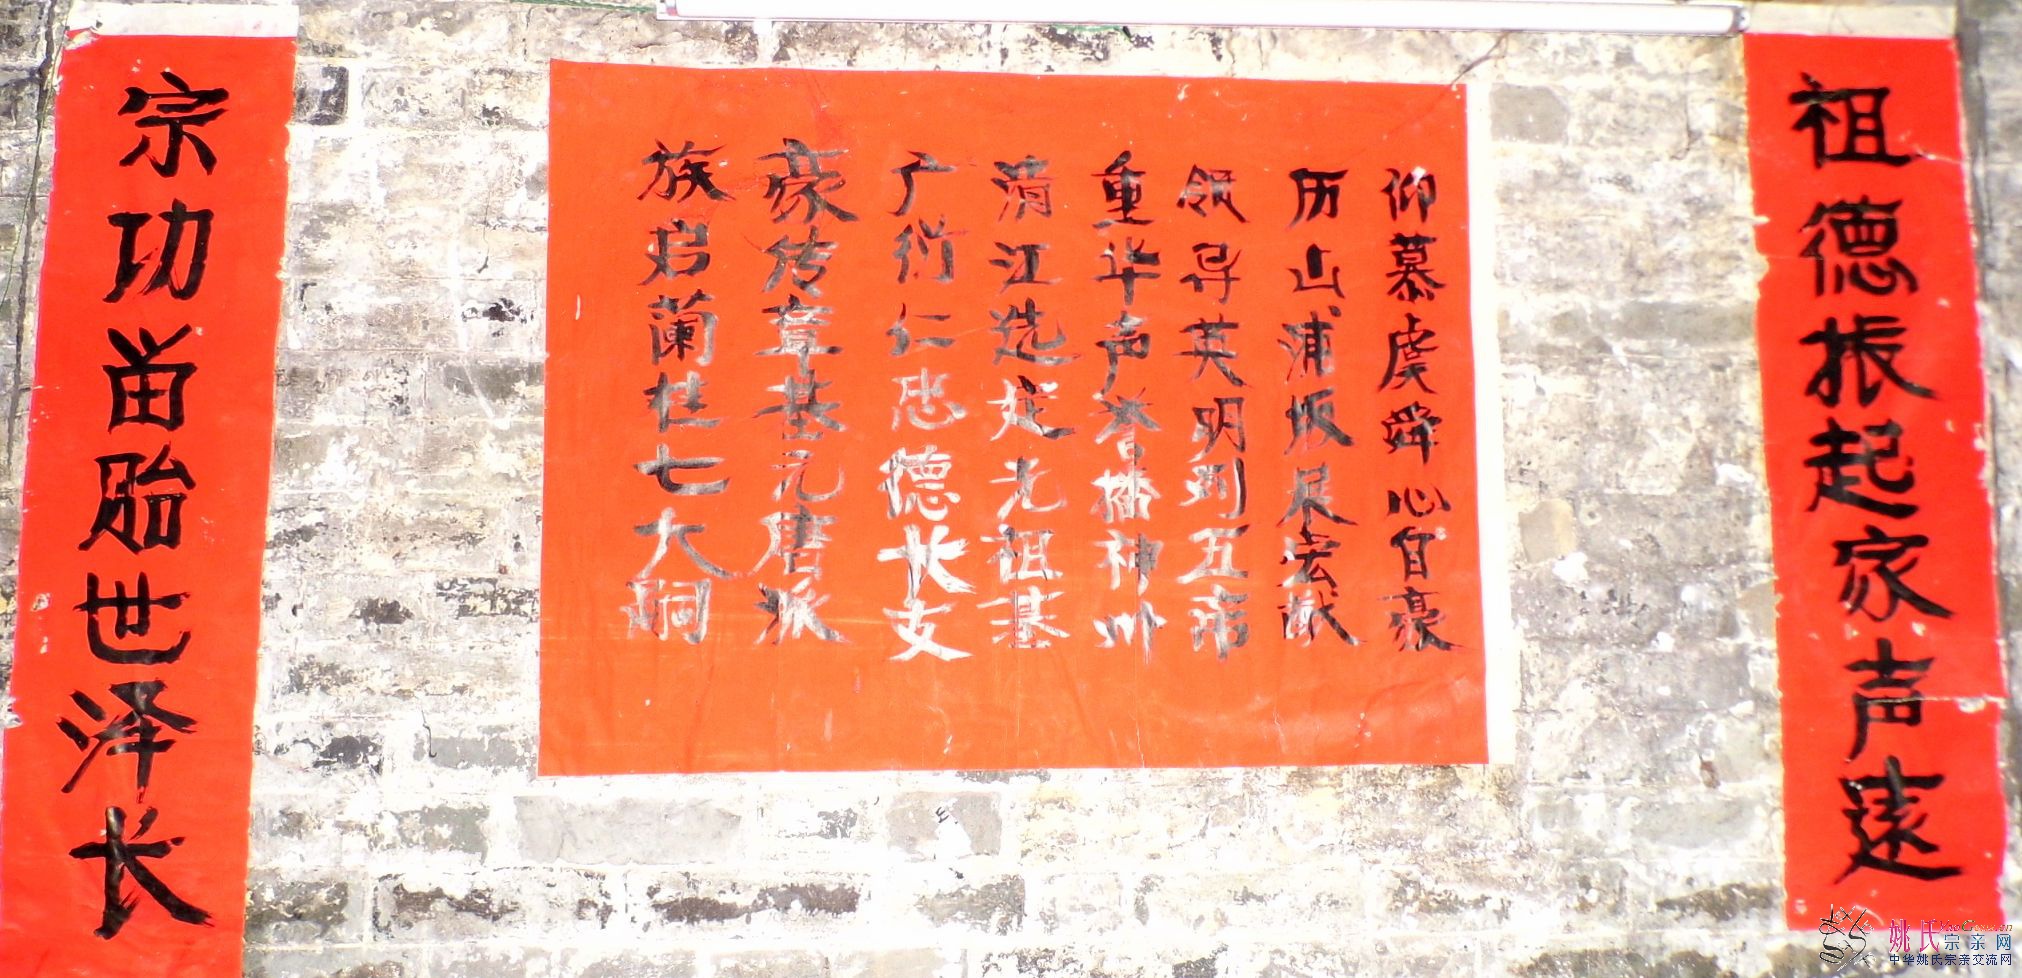 祖德振起家声远
仰慕虞舜心自豪
历山浦坂展宏猷
领导英明列五帝
重华声誉播神州
清江选定光祖基
广衍仁忠德长支
豪传章基元唐派
族启兰桂七大嗣
宗功畄贻世泽长
姚氏宗亲网
中华姚氏宗亲交流网